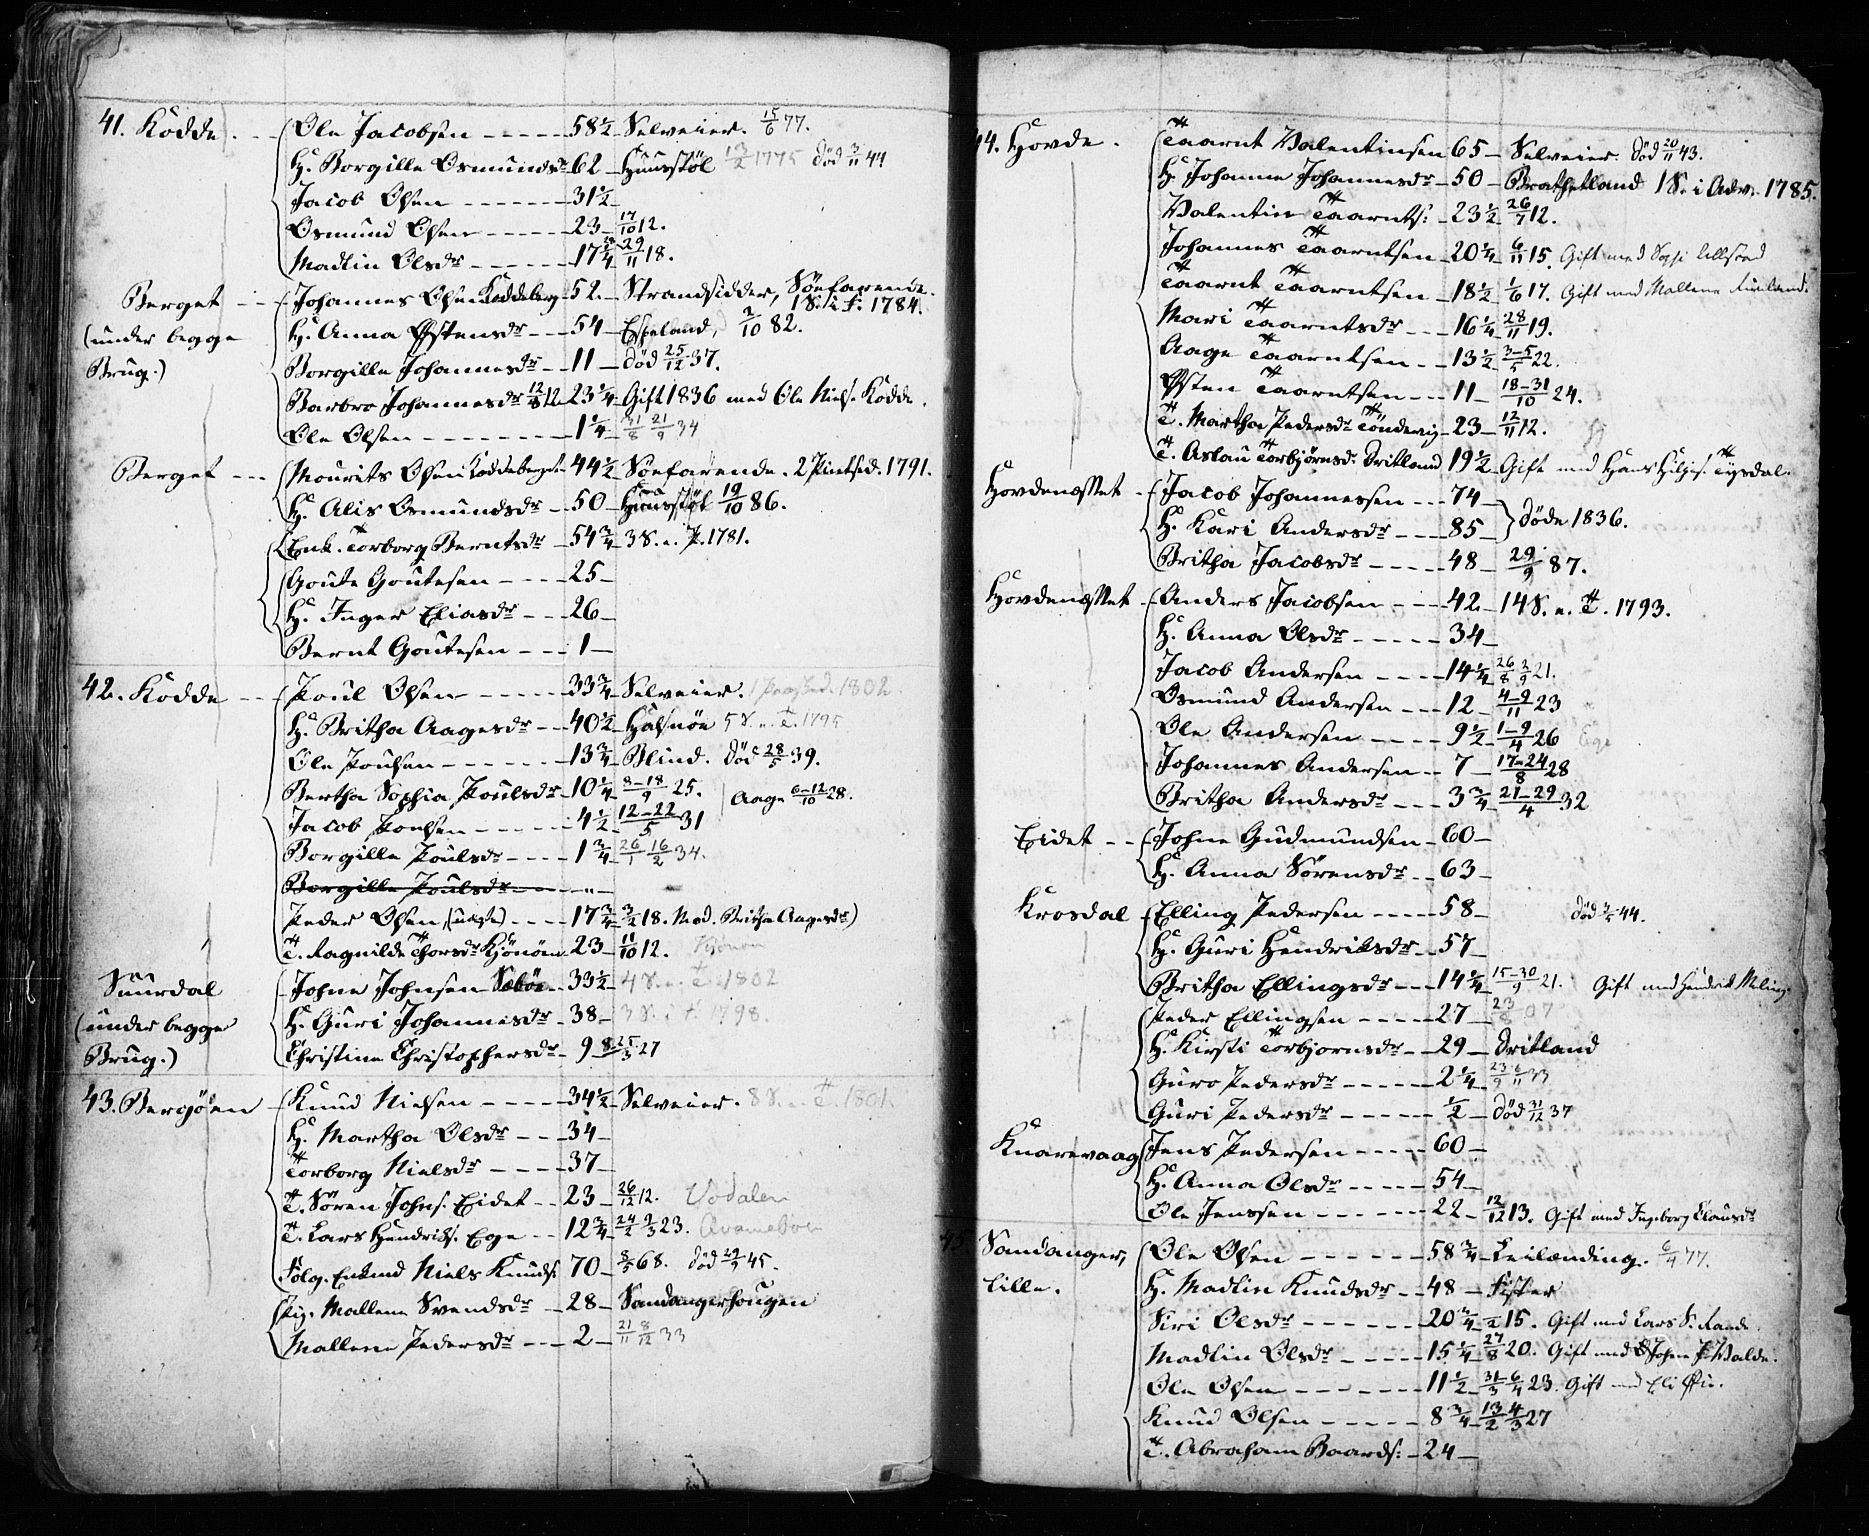 41. Kodde. Ole Jacobsen 58½ Selveier. 15/6 77.
H. Borgille Osmundsdr 62 Huusstöl 1775 död 3/11 44
Jacob Olsen 31½
Osmund Olsen 23 17/10 12.
Madlin Olsdr 17¼ 29/11 18.
Berget Johannes Olsen Koddeberg 52. Strandsidder, Söefarende.
1 S. i F. 1784.
(under begge H. Anna Østensdr 54 Espeland, 2/10 82.
Brug.) Borgille Johannesdr 11 död 25/12 37.
Barbro Johannesdr 12/8 12 23¼ Gift 1836 med Ole Niels. Kodde.
Ole Olsen 1¼ 31/8 21/9 34
Berget Mourits Olsen Koddeberget 44½ Söefarende. 2 Pintsed. 1791.
H. Alis Osmundsdr 50 Huusstöl 19/10 86.
Enk. Torborg Berntsdr 54¾ 3 S. e. P. 1781.
Goute Goutesen 25
H. Inger Eliasdr 26
Bernt Goutesen 1
42. Kodde Poul Olsen 33¾ Selveier. 1802
H. Britha Aagesdr 40½ Halsnöe 5 S. e. T. 1795
Ole Poulsen 13¾ Blind. död 28/5 39.
Bertha Sophia Poulsdr 10¼ 8–18/9 25. Aage 6–12/10 28.
Jacob Poulsen 4½ 12–22/5 31
Borgille Poulsdr 1¾ 26/1 16/2 34.
Borgille Poulsdr "
Peder Olsen, (uægte) 17¾ 3/2 18. Mod. Britha Aagesdr)
T. Ragnilde Thorsdr Hjönöen 23 11/10 12.
Suurdal Johne Johnsen Sæböe 33½ 4 S. e. T. 1802
(under begge H. Guri Johannesdr 38 3 S. i F. 1798.
Brug.) Christine Christophersdr 9 8/3 25/3 27
43. Bergöen Knud Nielsen 34½ Selveier. 8 S. e. T. 1801.
H. Martha Olsdr 34
Torborg Nielsdr 37
T. Sören Johns. Eidet 23 26/12 12. Vodalen
T. Lars Hendriks. Ege 12¾ 24/2 2/3 23.
Folg. Enkmd Niels Knuds. 70 8/5 68. död 45.
Pig. Mallene Svendsdr 28 Sandangerhougen
Mallene Pedersdr 2 21/11 8/12 33
44. Hovde. Taarnt Valentinsen 65 Selveier. död 20/11 43.
H. Johanne Johannesdr 50 Brathetland 1 S. i Adv. 1785.
Valentin Taarnts: 23½ 26/7 12.
Johannes Taarntsen 20¼ 6/11 15. Gift med
Taarnt Taarntsen 18½ 1/6 17. Gift med Mallene
Mari Taarntsdr 16¼ 28/11 19.
Aage Taarntsen 13½ 3–5/5 22.
Østen Taarntsen 11 18–31/10 24.
T. Martha Pedersdr Töndevig 23 12/11 12.
T. Aslau Torbjörnsd. Dritland 19½ Gift med Hans Tysdal.
Hovdenæsset Jacob Johannessen 74
H. Kari Andersdr 85 döde 1836.
Britha Jacobsdr 48 29/9 87.
Hovdenæsset Anders Jacobsen 42. 14 S. e. T. 1793.
H. Anna Olsdr 34
Jacob Andersen 14¼ 26/8 2/9 21.
Osmund Andersen 12 4–9/11 23
Ole Andersen 9½ 1–9/4 26 Ege
Johannes Andersen 7 17–24/8 28
Britha Andersdr 3¾ 21–29/4 32
Eidet Johne Gudmundsen 60
H. Anna Sörensdr 63
Krosdal Elling Pedersen 58 död 44.
H. Guri Hendriksdr 57
Britha Ellingsdr 14¼ 15–30/9 21. Gift med Hendrik Meling.
Peder Ellingsen 27 23/8 07
H. Kirsti Torbjornsdr 29 Dritland
Guro Pedersdr 2¼ 23/9 6/11 33
Guri Pedersdr ½ död 31/12 37
Knarevaag Jens Pedersen 60
H. Anna Olsdr 54
Ole Jenssen 22 12/12 13. Gift med Ingeborg Clausdr
45 Sandanger, Ole Olsen 58¾ Leilænding. 6/4 77.
lille. H. Madlin Knudsdr 48 Fister
Siri Olsdr 20¾ 15. Gift med Lars S. Rande.
Madlin Olsdr 15¼ 27/8 20. Gift med Johne P. Walde.
Ole Olsen 11½ 31/3 6/4 23. Gift med Eli
Knud Olsen 8¾ 13/2 4/3 27
T. Abraham Baards: 24